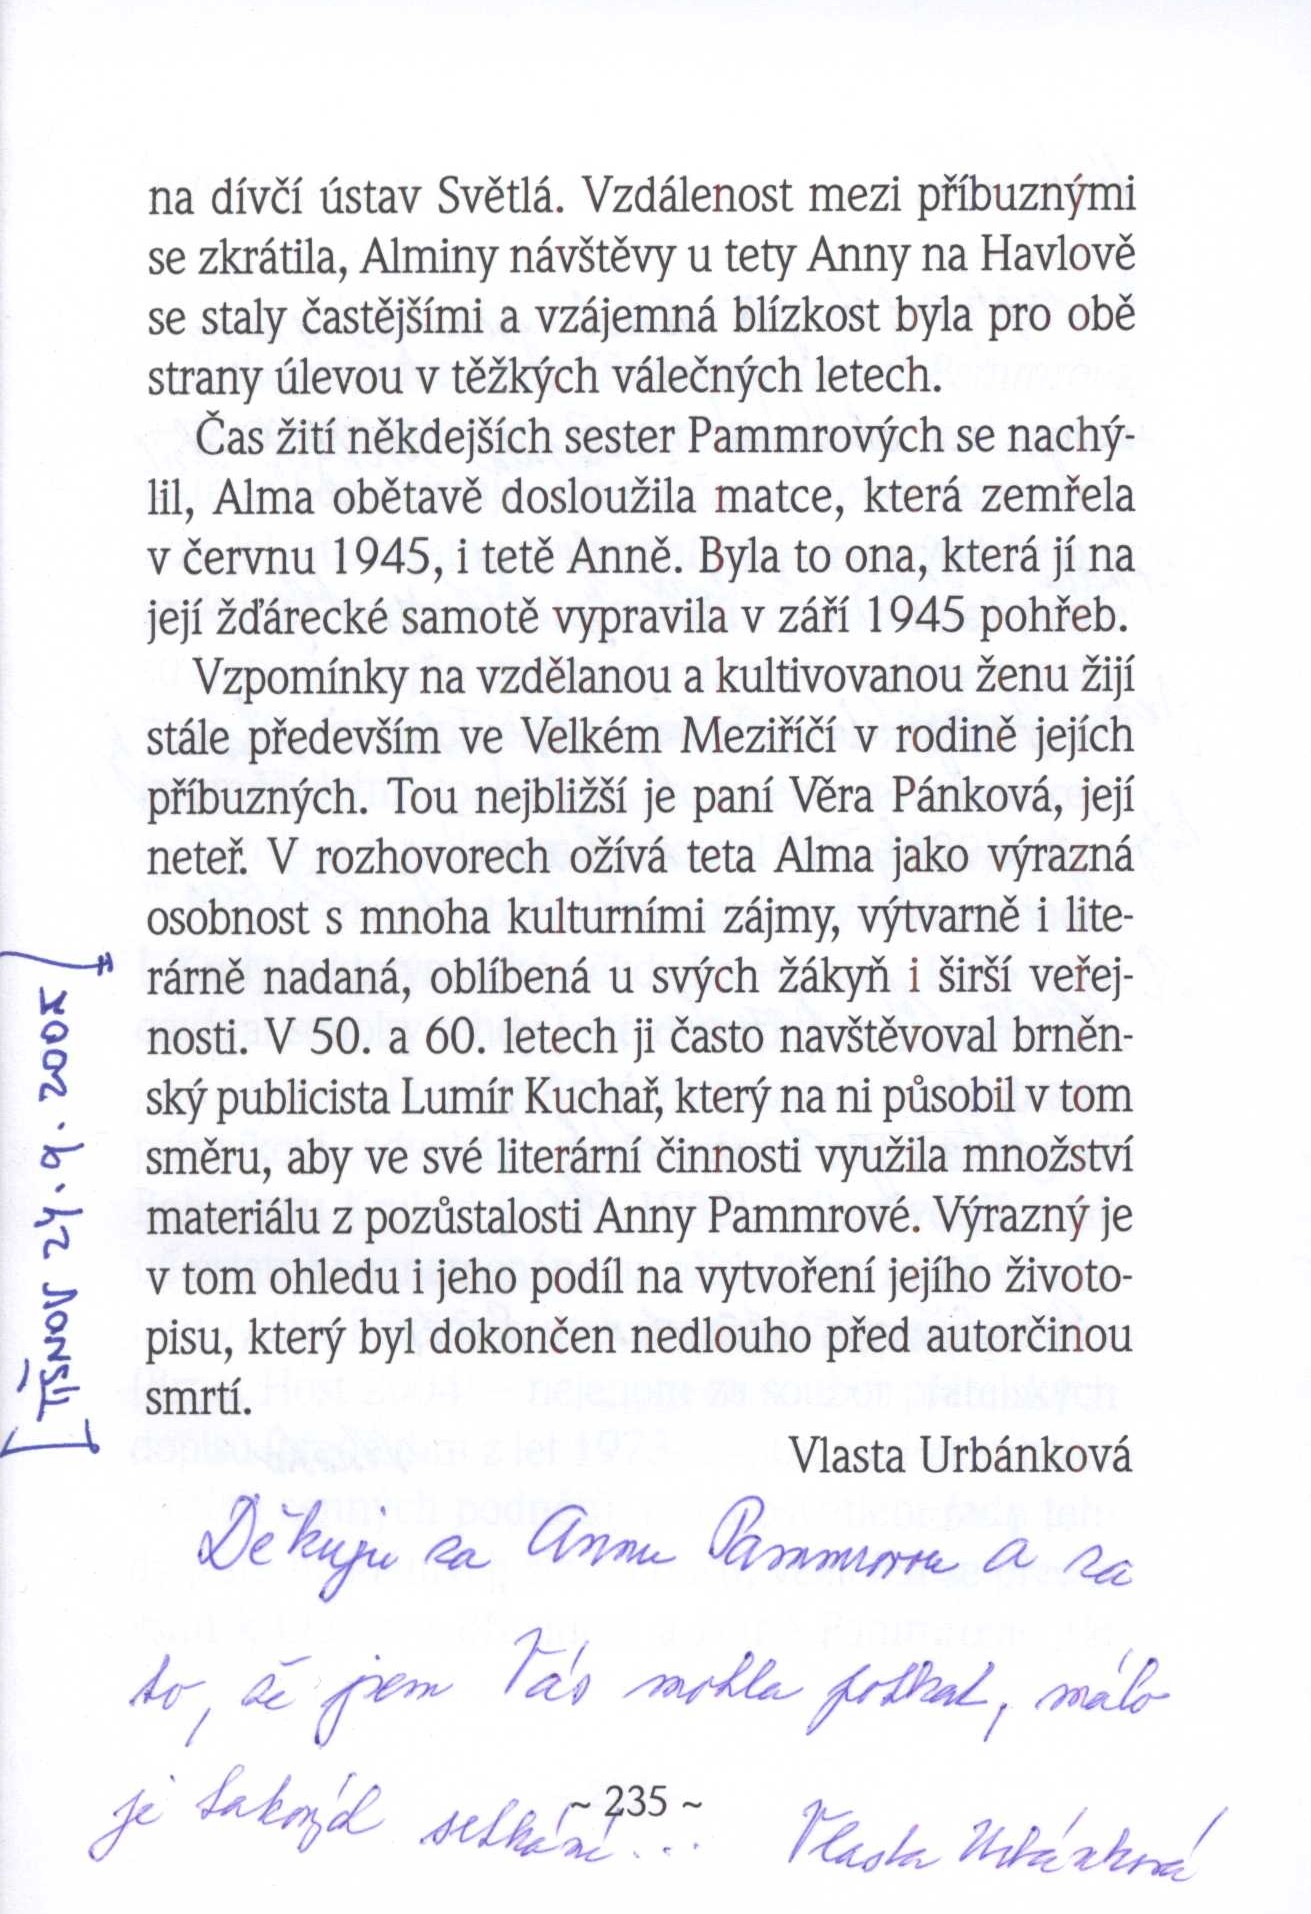 na dívčí ústav Světlá. Vzdálenost mezi příbuznými
se zkrátila, Alminy návštěvy u tety Anny na Havlově
se staly častějšími a vzájemná blízkost byla pro obě
strany úlevou v těžkých válečných letech.
Čas žití někdejších sester Pammrových se nachý-
lil, Alma obětavě dosloužila matce, která zemřela
v červnu 1945, i tetě Anně. Byla to ona, která jí na
její žďárecké samotě vypravila v září 1945 pohřeb.
Vzpomínky na vzdělanou a kultivovanou ženu žijí
stále především ve Velkém Meziříčí v rodině jejích
příbuzných. Tou nejbližší je paní Věra Pánková, její
neteř. V rozhovorech ožívá teta Alma jako výrazná
osobnost s mnoha kulturními zájmy, výtvarně i lite-
rárně nadaná, oblíbená u svých žákyň i širší veřej-
nosti. V 50. a 60. letech ji často navštěvoval brněn-
ský publicista Lumír Kuchař, který na ni působil v tom
směru, aby ve své literární činnosti využila množství
materiálu z pozůstalosti Anny Pammrové. Výrazný je
v tom ohledu i jeho podíl na vytvoření jejího životo-
pisu, který byl dokončen nedlouho před autorčinou
smrtí.
Vlasta Urbánková
Děkuji za Annu Pammrovou a za
to, že jsem Vás mohla potkat, málo
je takových setkání...
~ 235 ~
Vlasta Urbánková
TIŠNOV 24. 9. 2005